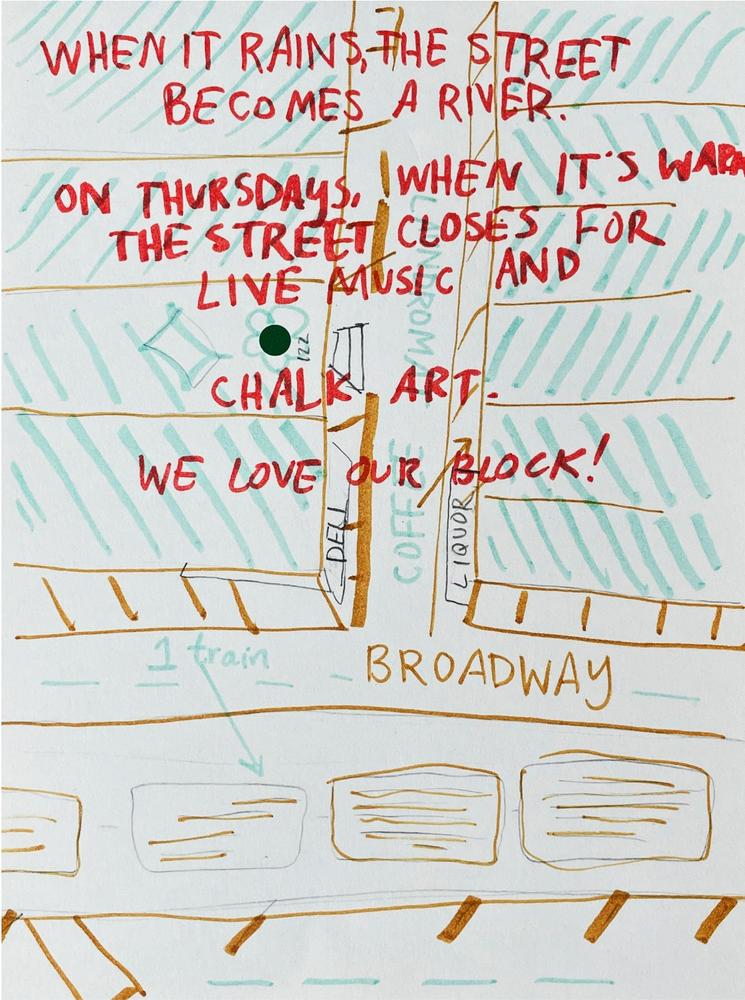 WHEN IT RAINS, THE STREET
BECOMES A RIVER.
ON THURSDAYS, WHEN IT'S WARM
THE STREET CLOSES FOR
LIVE MUSIC AND
122
CHALK ART.
WE LOVE OUR BLOCK!
DELI
COFFEE
LIQUOR
1 train
BROADWAY